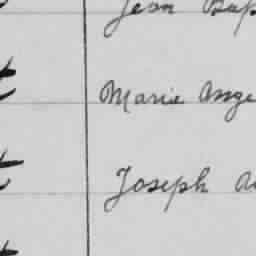 Jean Bap
Marie Ange
Joseph A